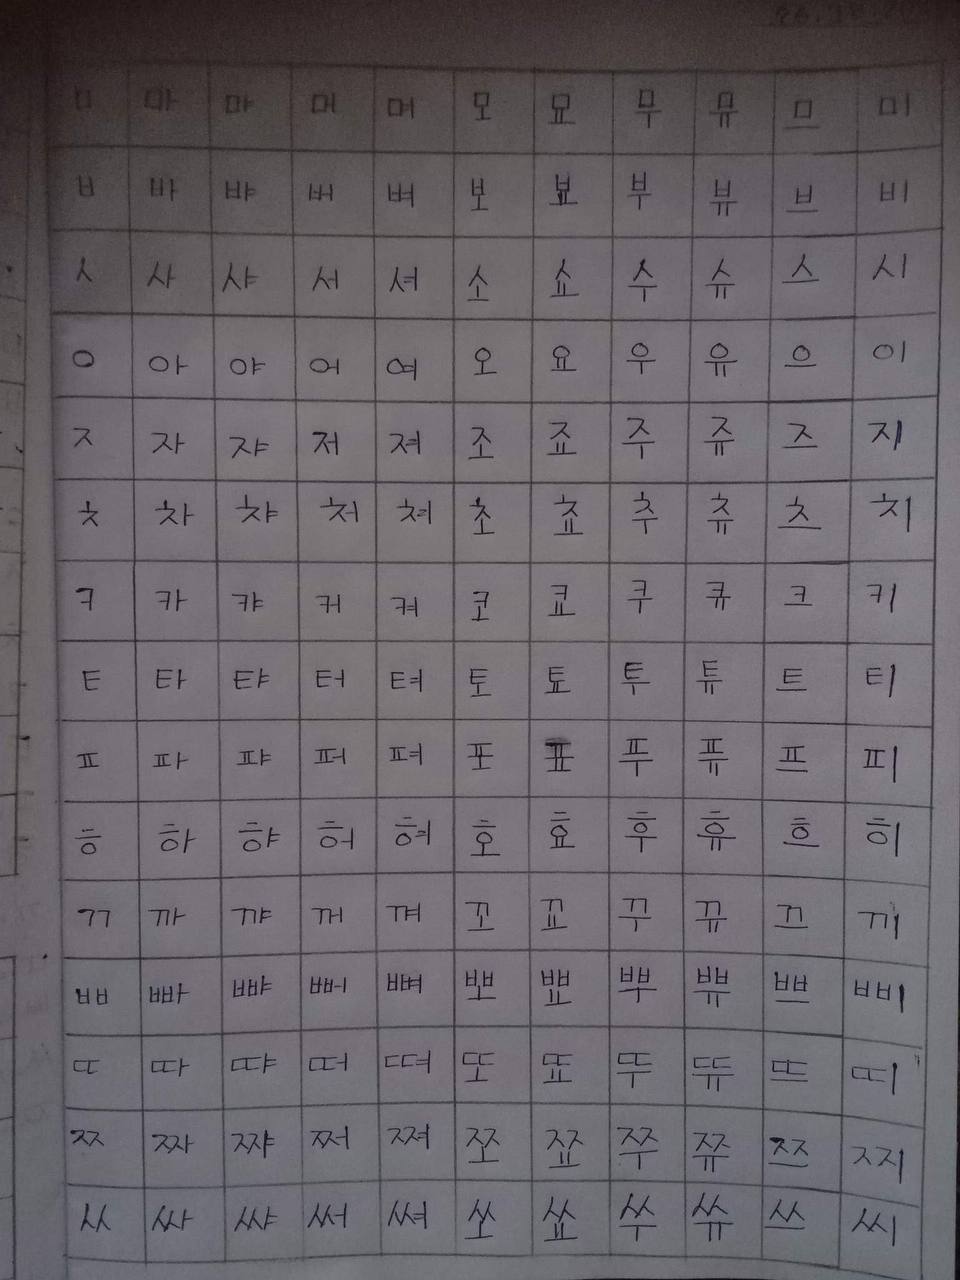 ㅁ 마 먀 머 며 모 묘 무 뮤 므 미
ㅂ 바 뱌 버 벼 보 뵤 부 뷰 브 비
ㅅ 사 샤 서 셔 소 쇼 수 슈 스 시
ㅇ 아 야 어 여 오 요 우 유 으 이
ㅈ 자 쟈 저 져 조 죠 주 쥬 즈 지
ㅊ 차 챠 처 쳐 초 쵸 추 츄 츠 치
ㅋ 카 캬 커 켜 코 쿄 쿠 큐 크 키
ㅌ 타 탸 터 텨 토 툐 투 튜 트 티
ㅍ 파 퍄 퍼 펴 포 표 푸 퓨 프 피
ㅎ 하 햐 허 혀 호 효 후 휴 흐 히
ㄲ 까 꺄 꺼 껴 꼬 꾜 꾸 뀨 끄 끼
ㅃ 빠 뺘 뻐 뼈 뽀 뾰 뿌 쀼 쁘 삐
ㄸ 따 땨 떠 뗘 또 뚀 뚜 뜌 뜨 띠
ㅉ 짜 쨔 쩌 쪄 쪼 쬬 쭈 쮸 쯔 찌
ㅆ 싸 쌰 써 쎠 쏘 쑈 쑤 쓔 쓰 씨